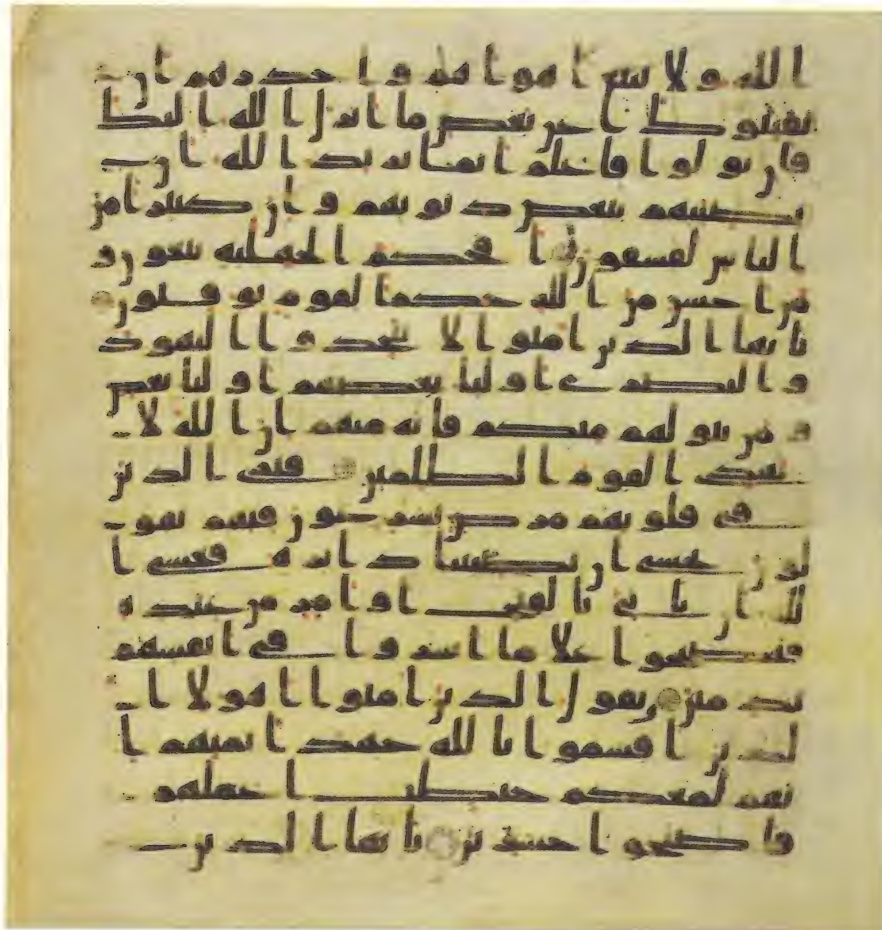 الله ولا تتبع اهواهم واحذرهم ان
يفتنوك عن بعض ما انزل الله اليك
فان تولوا فاعلم انما يريد الله ان
يصيبهم ببعض ذنوبهم وان كثيرا من
الناس لفسقون افحكم الجهلية يبغون و
من احسن من الله حكما لقوم يوقنون
يايها الذين امنوا لا تتخذوا اليهود
والنصرى اوليا بعضهم اوليا بعض
ومن يتولهم منكم فانه منهم ان الله لا
يهدى القوم الظلمين فترى الذين
فى قلوبهم مرض يسرعون فيهم يقو
لون نخشى ان تصيبنا دايره فعسى ا
لله ان ياتى بالفتح او امر من عنده
فيصبحوا علا ما اسروا فى انفسهم
ندمين ويقول الذين امنوا اهولا ا
لذين اقسموا بالله جهد ايمنهم ا
نهم لمعكم حبطت اعملهم
فاصبحوا خسرين يايها الذين